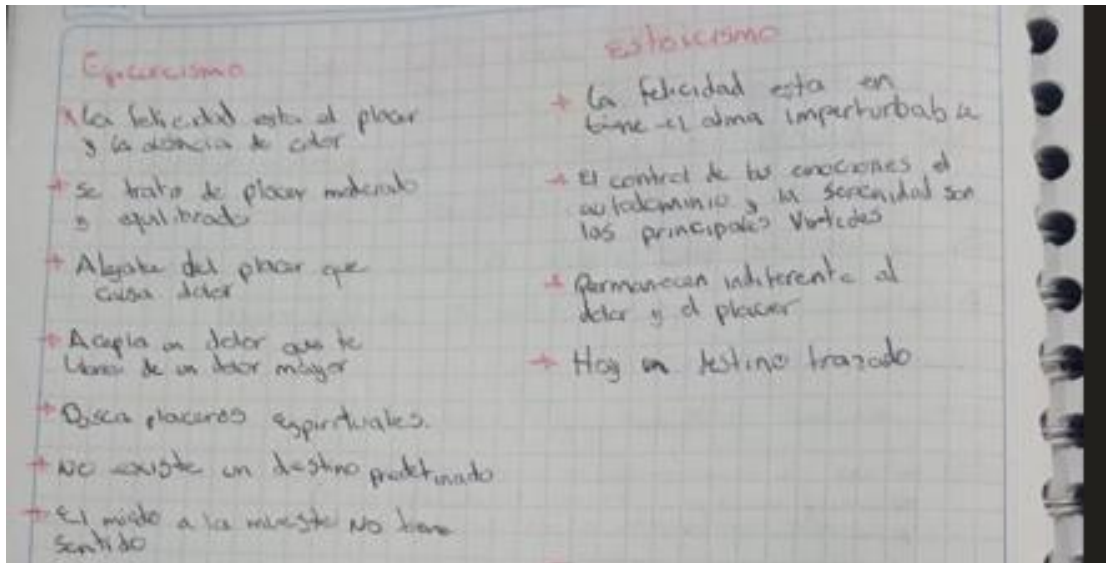 Epicureismo
La felicidad esta al placer
y la ausencia de dolor
+ Se trata de placer moderado
y equilibrado
+ Alejate del placer que
causa dolor
+ Acepta un dolor que te
libres de un dolor mayor
+ Busca placeres espirituales.
+ NO existe un destino predefinado
+ El miedo a la muerte NO tiene
sentido
estoicismo
+ La felicidad esta en
tiene el alma imperturbable
+ El control de tus emociones el
autodominio y la serenidad son
los principales virtudes
+ Permanecen indiferente al
dolor y el placer
+ Hay un destino trazado